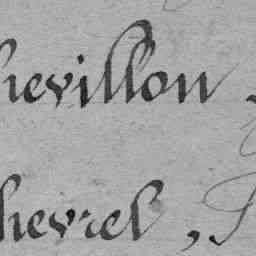 hevillon,
hevrel,